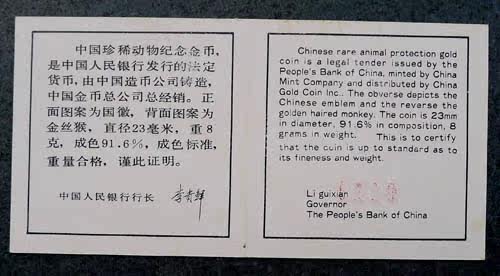 中国珍稀动物纪念金币，
是中国人民银行发行的法定
货币，由中国造币公司铸造，
中国金币总公司总经销。正
面图案为国徽，背面图案为
金丝猴，直径23毫米，重8
克，成色91.6%，成色标准，
重量合格，谨此证明。
中国人民银行行长 李贵鲜
Chinese rare animal protection gold
coin is a legal tender issued by the
People's Bank of China, minted by China
Mint Company and distributed by China
Gold Coin Inc.. The obverse depicts the
Chinese emblem and the reverse the
golden haired monkey. The coin is 23mm
in diameter, 91.6% in composition, 8
grams in weight. This is to certify
that the coin is up to standard as to
its fineness and weight.
Li guixian
Governor
The People's Bank of China